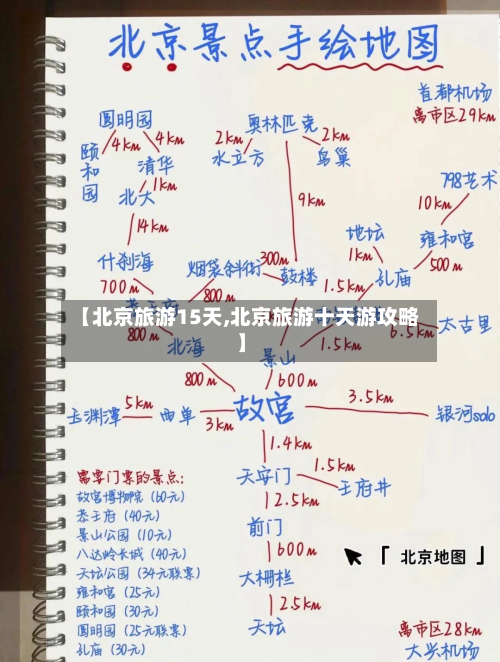 北京景点手绘地图
首都机场
离市区29km
圆明园
4km
4km
颐和园
清华
1km
北大
14km
奥林匹克
2km
2km
水立方
鸟巢
9km
798艺术
10km
雍和宫
500m
地坛
1km
孔庙
1.5km
什刹海
700m
烟袋斜街
300m
鼓楼
800m
【北京旅游15天,北京旅游十天游攻略
】
800m
北海
景山
1.5km
太古里
800m
600m
玉渊潭
5km
西单
3km
故宫
3.5km
银河solo
1.4km
天安门
1.5km
王府井
2.5km
前门
600m
大栅栏
2.5km
天坛
需要门票的景点:
故宫博物院(60元)
恭王府(40元)
景山公园(10元)
八达岭长城(40元)
天坛公园(34元联票)
雍和宫(25元)
颐和园(30元)
圆明园(25元联票)
孔庙(30元)
「 北京地图 」
离市区28km
大兴机场